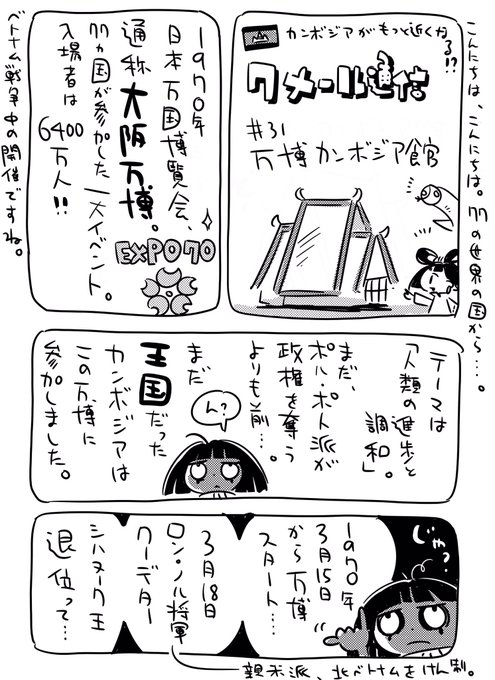 こんにちは、こんにちは。77の世界の国から…。
カンボジアがもっと近くなる!?
クメール通信
#31
万博カンボジア館
1970年
日本万国博覧会、
通称大阪万博。
77ヵ国が参加した一大イベント。
入場者は
6400
万人!!
EXPO70
ベトナム戦争中の開催ですね。
テーマは
「人類の進歩と
調和」。
まだ、
ポル・ポト派が
政権を奪う
よりも前…。
まだ
王国だった
カンボジアは
この万博に
参加しました。
ん?
じゃっ?
1970年
3月15日
から万博
スタート…
3月18日
ロン・ノル将軍
クーデター
シハヌーク王
退位って…
親米派、北ベトナムをけん制。